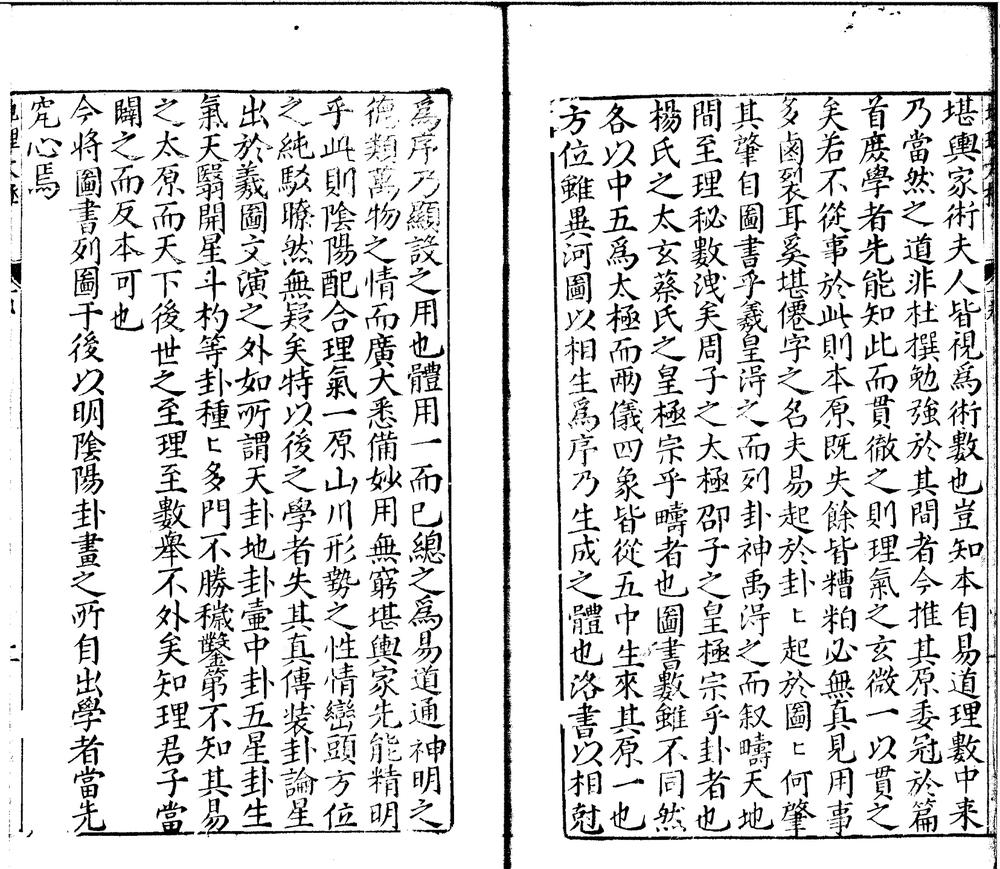 堪輿家術夫人皆視爲術數也豈知本自易道理數中来
乃當然之道非杜撰勉強於其間者今推其原委冠於篇
首庶學者先能知此而貫徹之則理氣之玄微一以貫之
矣若不從事於此則本原既失餘皆糟粕必無真見用事
多鹵裂耳奚堪僊字之名夫易起於卦ヒ起於圖ヒ何肇
其肇自圖書乎羲皇淂之而列卦神禹淂之而叙疇天地
間至理秘數洩矣周子之太極邵子之皇極宗乎卦者也
楊氏之太玄蔡氏之皇極宗乎疇者也圖書數雖不同然
各以中五爲太極而兩儀四象皆從五中生來其原一也
方位雖異河圖以相生爲序乃生成之體也洛書以相尅
爲序乃顯設之用也體用一而已總之爲易道通神明之
德類萬物之情而廣大悉備妙用無窮堪輿家先能精明
乎此則陰陽配合理氣一原山川形勢之性情巒頭方位
之純駁瞭然無疑矣特以後之學者失其真傳装卦論星
出於羲圖文演之外如所謂天卦地卦壷中卦五星卦生
氣天翳開星斗杓等卦種ヒ多門不勝穢鑿第不知其易
之太原而天下後世之至理至數舉不外矣知理君子當
闢之而反本可也
今將圖書列圖于後以明陰陽卦畫之所自出學者當先
究心焉